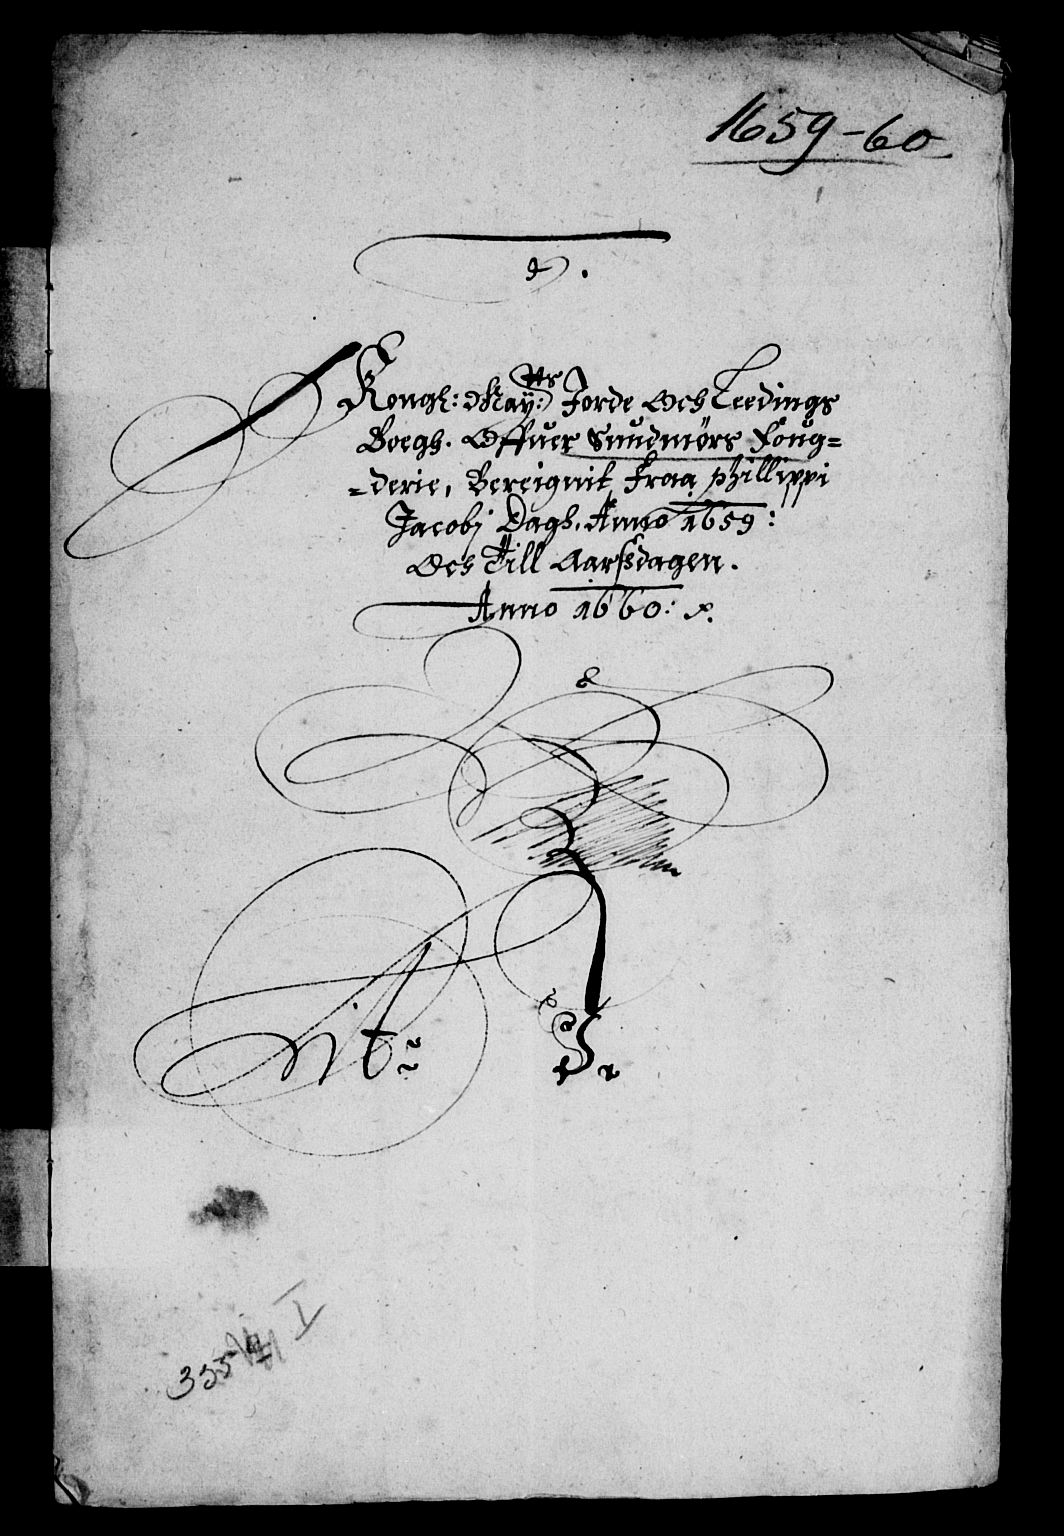 1659-60
Kongl: May:tts Jorde Och Leedings
Boegh. Offuer Sundmørs Foug=
=derie, Bereignit Fraa Phillippi
Jacobj Dagh. Anno 1659:
Och Till Aarssdagen.
Anno 1660:
Lit: J.
355
I